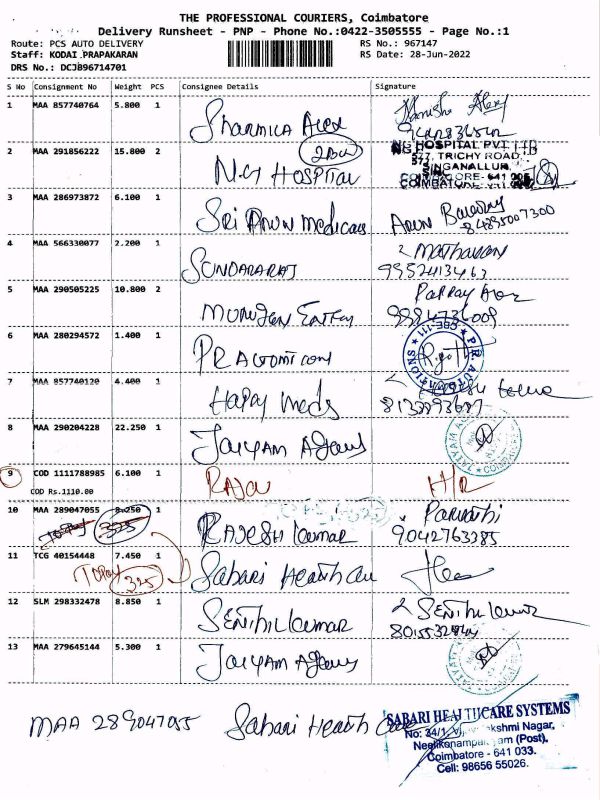 THE PROFESSIONAL COURIERS, Coimbatore
Delivery Runsheet - PNP - Phone No.:0422-3505555 - Page No.:1
Route: PCS AUTO DELIVERY RS No.: 967147
Staff: KODAI PRAPAKARAN RS Date: 28-Jun-2022
DRS No.: DCJB96714701
S No Consignment No Weight PCS Consignee Details Signature
1 MAA 857740764 5.800 1 Sharmila Alex
2 MAA 291856222 15.800 2 N.G Hospital
NG HOSPITAL PVT LTD
577, TRICHY ROAD,
SINGANALLUR,
COIMBATORE - 641 005
3 MAA 286973872 6.100 1 Sri Arun Medicals Arun
84895007300
4 MAA 566330077 2.200 1 SUNDARARAJ
9952413463
5 MAA 290505225 10.800 2
9994736009
6 MAA 280294572 1.400 1
PR AUTOMATIONS
7 MAA 857740120 4.400 1 Hapay Meds
8 MAA 290204228 22.250 1 Jaiyam Agens
9 COD 1111788985 6.100 1 RAJOU H/R
COD Rs.1110.00
10 MAA 289047055 8.250 1 RAJESH kumar Parvathi
325 9042763385
11 TCG 40154448 7.450 1 Sabari Health Care
TOPAY 325
12 SLM 298332478 8.850 1 SENTHIL kumar Senthil kumar
13 MAA 279645144 5.300 1 Jaiyam Agens
MAA 289047055 Sabari Health Care
SABARI HEALTHCARE SYSTEMS
No: 34/1, Vijayalakshmi Nagar,
Neelikonampalayam (Post),
Coimbatore - 641 033.
Cell: 98656 55026.